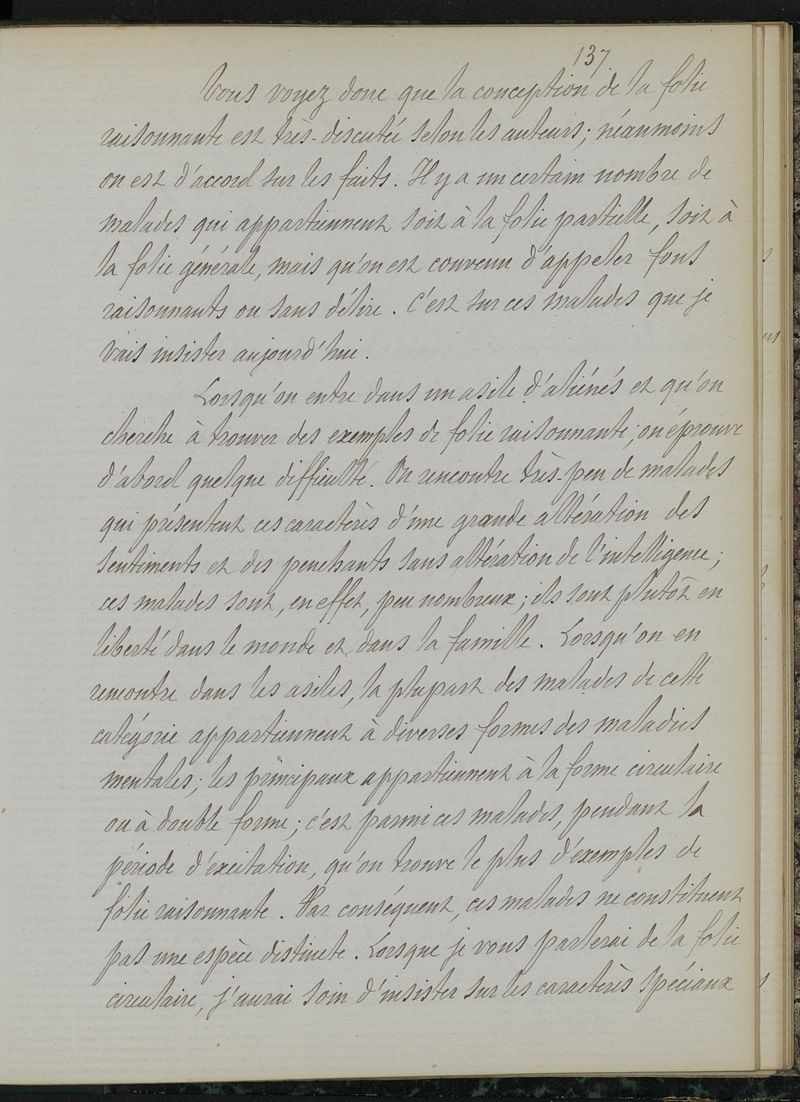 137
Vous voyez donc que la conception de la folie
raisonnante est très-discutée selon les auteurs ; néanmoins
on est d'accord sur les faits. Il y a un certain nombre de
malades qui appartiennent soit à la folie partielle, soit à
la folie générale, mais qu'on est convenu d'appeler fous
raisonnants ou sans délire. C'est sur ces malades que je
vais insister aujourd'hui.
Lorsqu'on entre dans un asile d'aliénés et qu'on
cherche à trouver des exemples de folie raisonnante, on éprouve
d'abord quelque difficulté. On rencontre très-peu de malades
qui présentent ces caractères d'une grande altération des
sentiments et des penchants sans altération de l'intelligence ;
ces malades sont, en effet, peu nombreux ; ils sont plutôt en
liberté dans le monde et dans la famille. Lorsqu'on en
rencontre dans les asiles, la plupart des malades de cette
catégorie appartiennent à diverses formes des maladies
mentales ; les principaux appartiennent à la forme circulaire
ou à double forme ; c'est parmi ces malades, pendant la
période d'excitation, qu'on trouve le plus d'exemples de
folie raisonnante. Par conséquent, ces malades ne constituent
pas une espèce distincte. Lorsque je vous parlerai de la folie
circulaire, j'aurai soin d'insister sur les caractères spéciaux